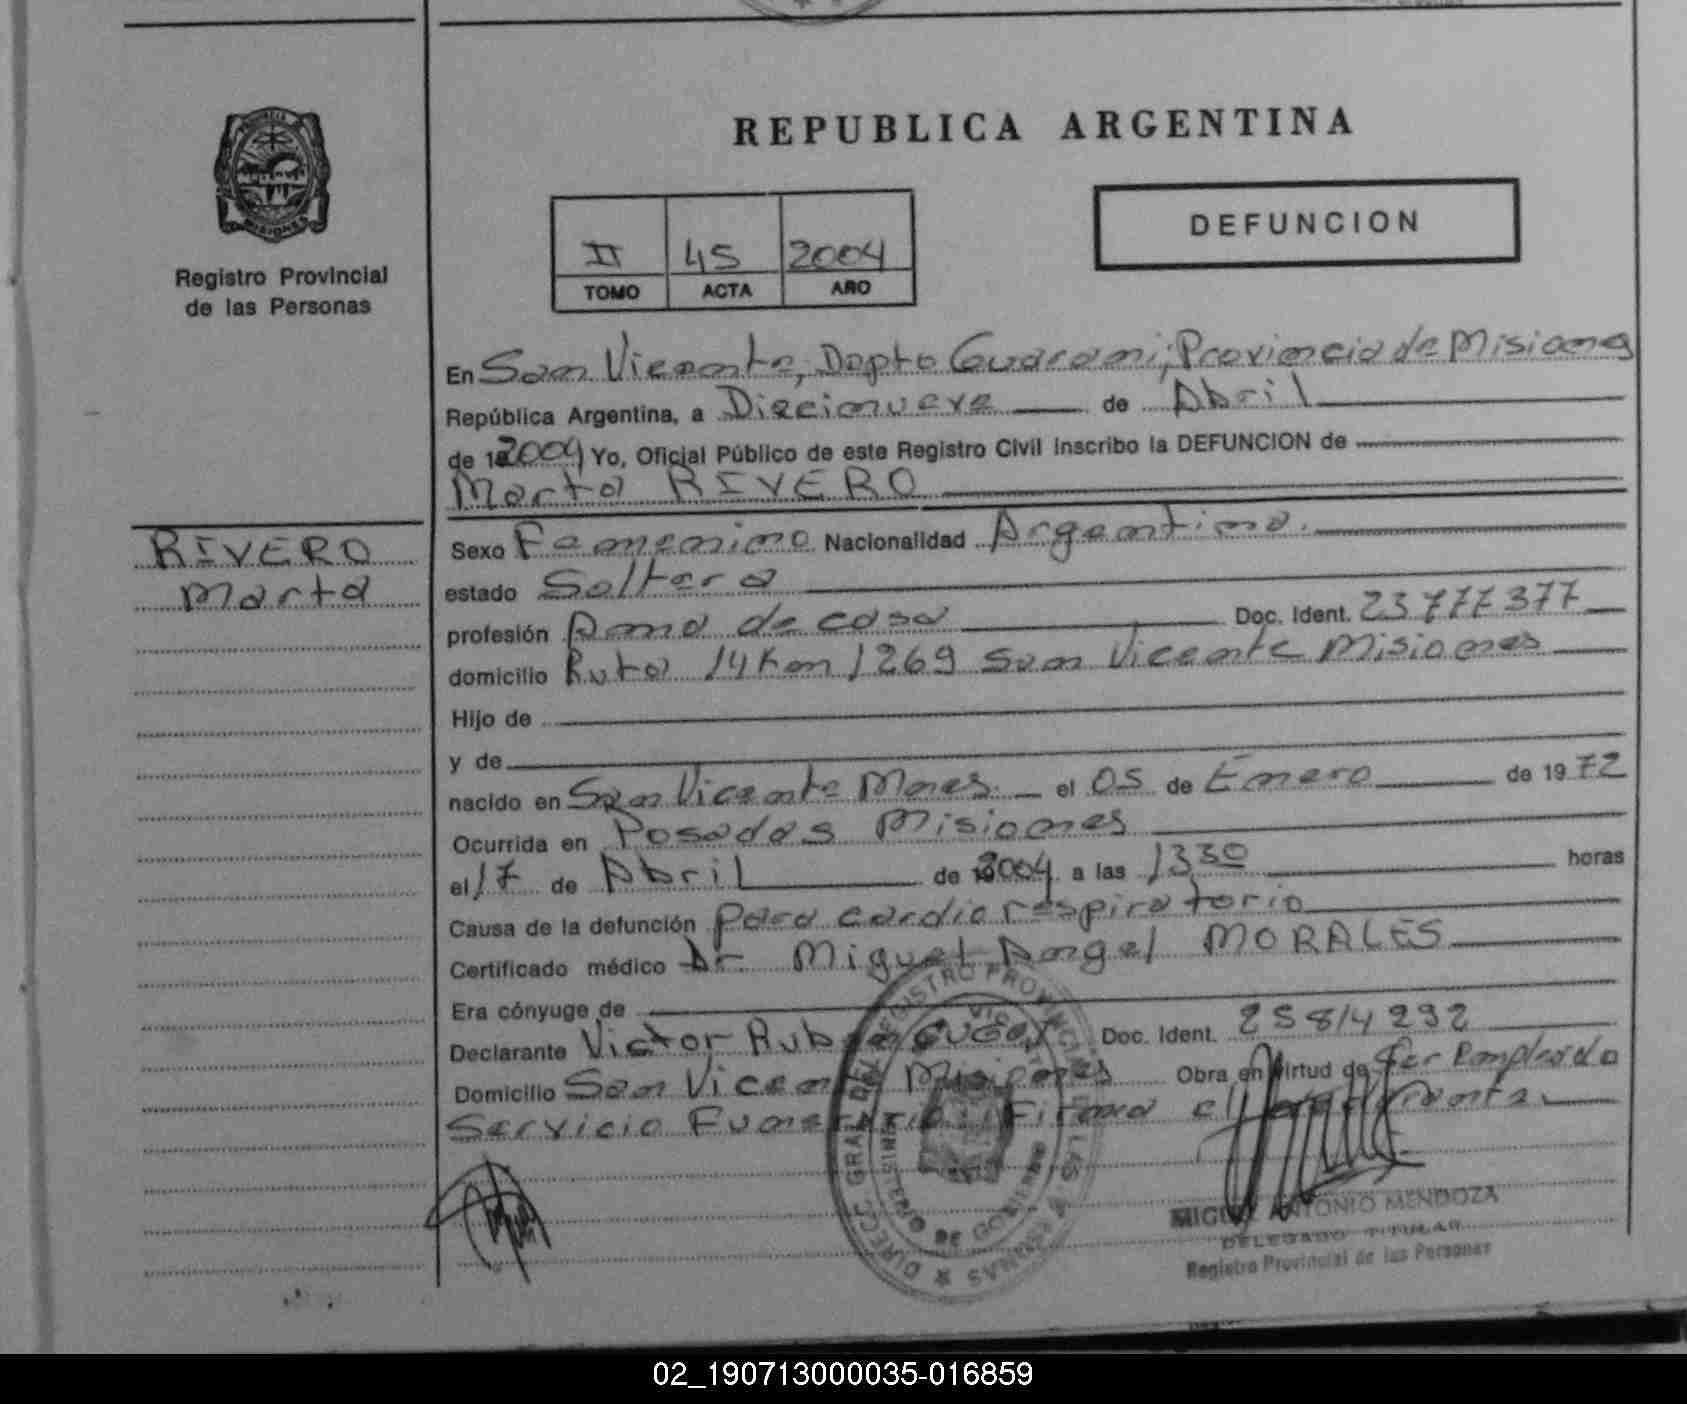 REPUBLICA ARGENTINA
PROVINCIA DE
MISIONES
Registro Provincial
de las Personas
II 45 2004
TOMO ACTA AÑO
DEFUNCION
En San Vicente, Depto Guarani, Provincia de Misiones
República Argentina, a Diecinueve de Abril
de 2004 Yo, Oficial Público de este Registro Civil Inscribo la DEFUNCION de
Marta RIVERO
RIVERO
Marta
Sexo Femenino Nacionalidad Argentina.
estado Soltera
profesión Ama de casa Doc. Ident. 23777377
domicilio Ruta 14 Km 1269 San Vicente Misiones
Hijo de
y de
nacido en San Vicente Mnes. el 05 de Enero de 1972
Ocurrida en Posadas Misiones
el 17 de Abril de 2004 a las 1330 horas
Causa de la defunción paro cardiorespiratorio
Certificado médico Dr. Miguel Angel MORALES
Era cónyuge de
Declarante Victor Ruben Doc. Ident. 25814292
Domicilio San Vicente Misiones Obra en virtud de Ser Empleado
Servicio Funerario. Firma el declarante.
DIRECC. GRAL. DEL REGISTRO PROVINCIAL DE LAS PERSONAS
MINISTERIO DE GOBIERNO
MIGUEL ANTONIO MENDOZA
DELEGADO TITULAR
Registro Provincial de las Personas
02_190713000035-016859